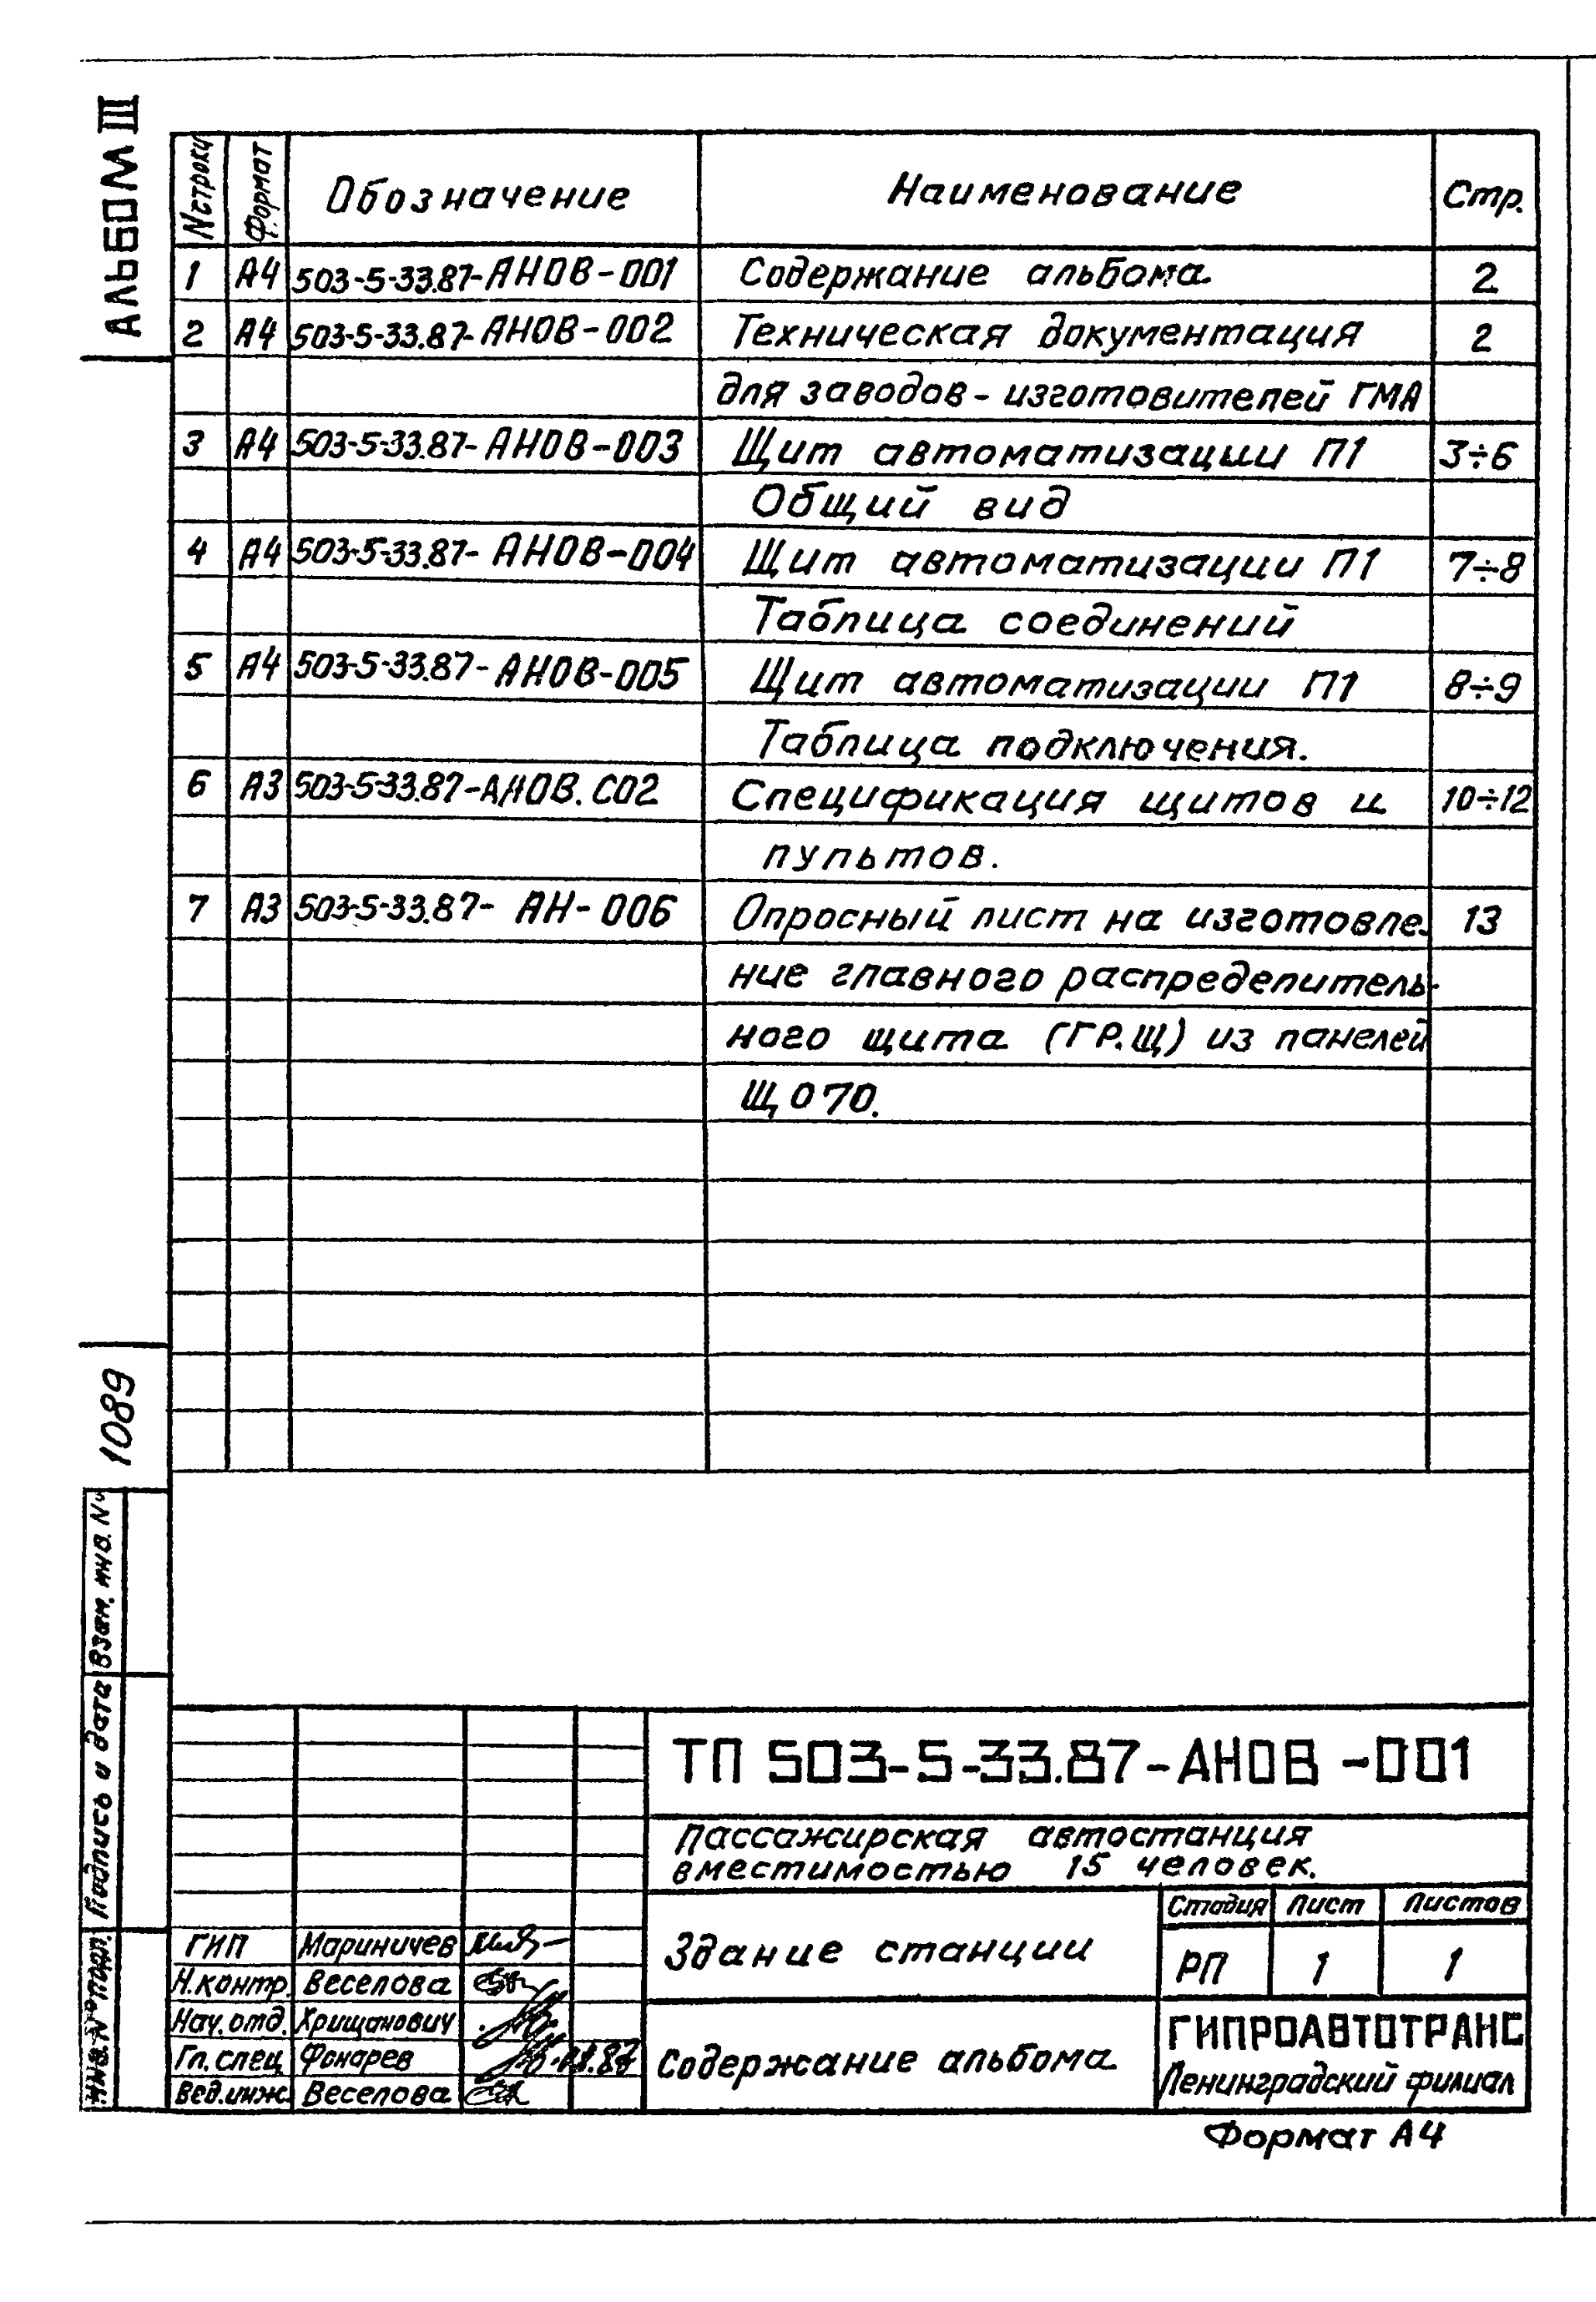 Альбом III
N строки Формат Обозначение Наименование Стр.
1 А4 503-5-33.87-АНОВ-001 Содержание альбома 2
2 А4 503-5-33.87-АНОВ-002 Техническая документация 2
для заводов-изготовителей ГМА
3 А4 503-5-33.87-АНОВ-003 Щит автоматизации П1 3÷6
Общий вид
4 А4 503-5-33.87-АНОВ-004 Щит автоматизации П1 7÷8
Таблица соединений
5 А4 503-5-33.87-АНОВ-005 Щит автоматизации П1 8÷9
Таблица подключения.
6 А3 503-5-33.87-АНОВ.С02 Спецификация щитов и 10÷12
пультов.
7 А3 503-5-33.87-АН-006 Опросный лист на изготовле- 13
ние главного распределитель-
ного щита (ГР.Щ) из панелей
ЩО70.
1089
Взам. инв. №
Подпись и дата
Инв. № подл.
ТП 503-5-33.87-АНОВ-001
Пассажирская автостанция
вместимостью 15 человек.
Здание станции
Стадия Лист Листов
РП 1 1
ГИП Мариничев
Н.контр. Веселова
Нач. отд. Хрищанович
Гл. спец Фонарев
Вед.инж. Веселова
Содержание альбома
ГИПРОАВТОТРАНС
Ленинградский филиал
Формат А4